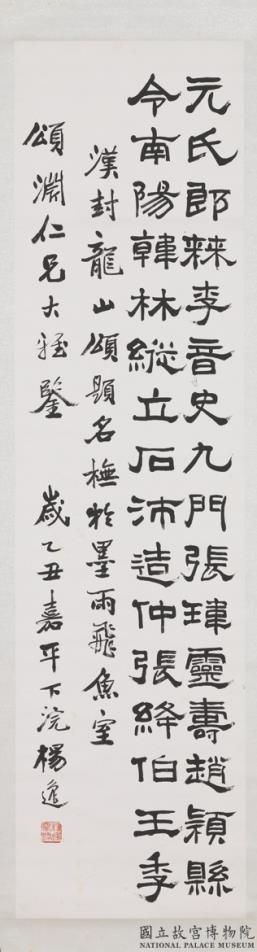 元氏郎棘李音史九門張瑋靈壽趙穎縣
令南陽韓林縱立石沛造仲張絳伯王季
漢封龍山頌題名橅於墨雨飛魚室
頌淵仁兄大雅鑒
歲乙丑嘉平下浣楊
國立故宮博物院
NATIONAL PALACE MUSEUM